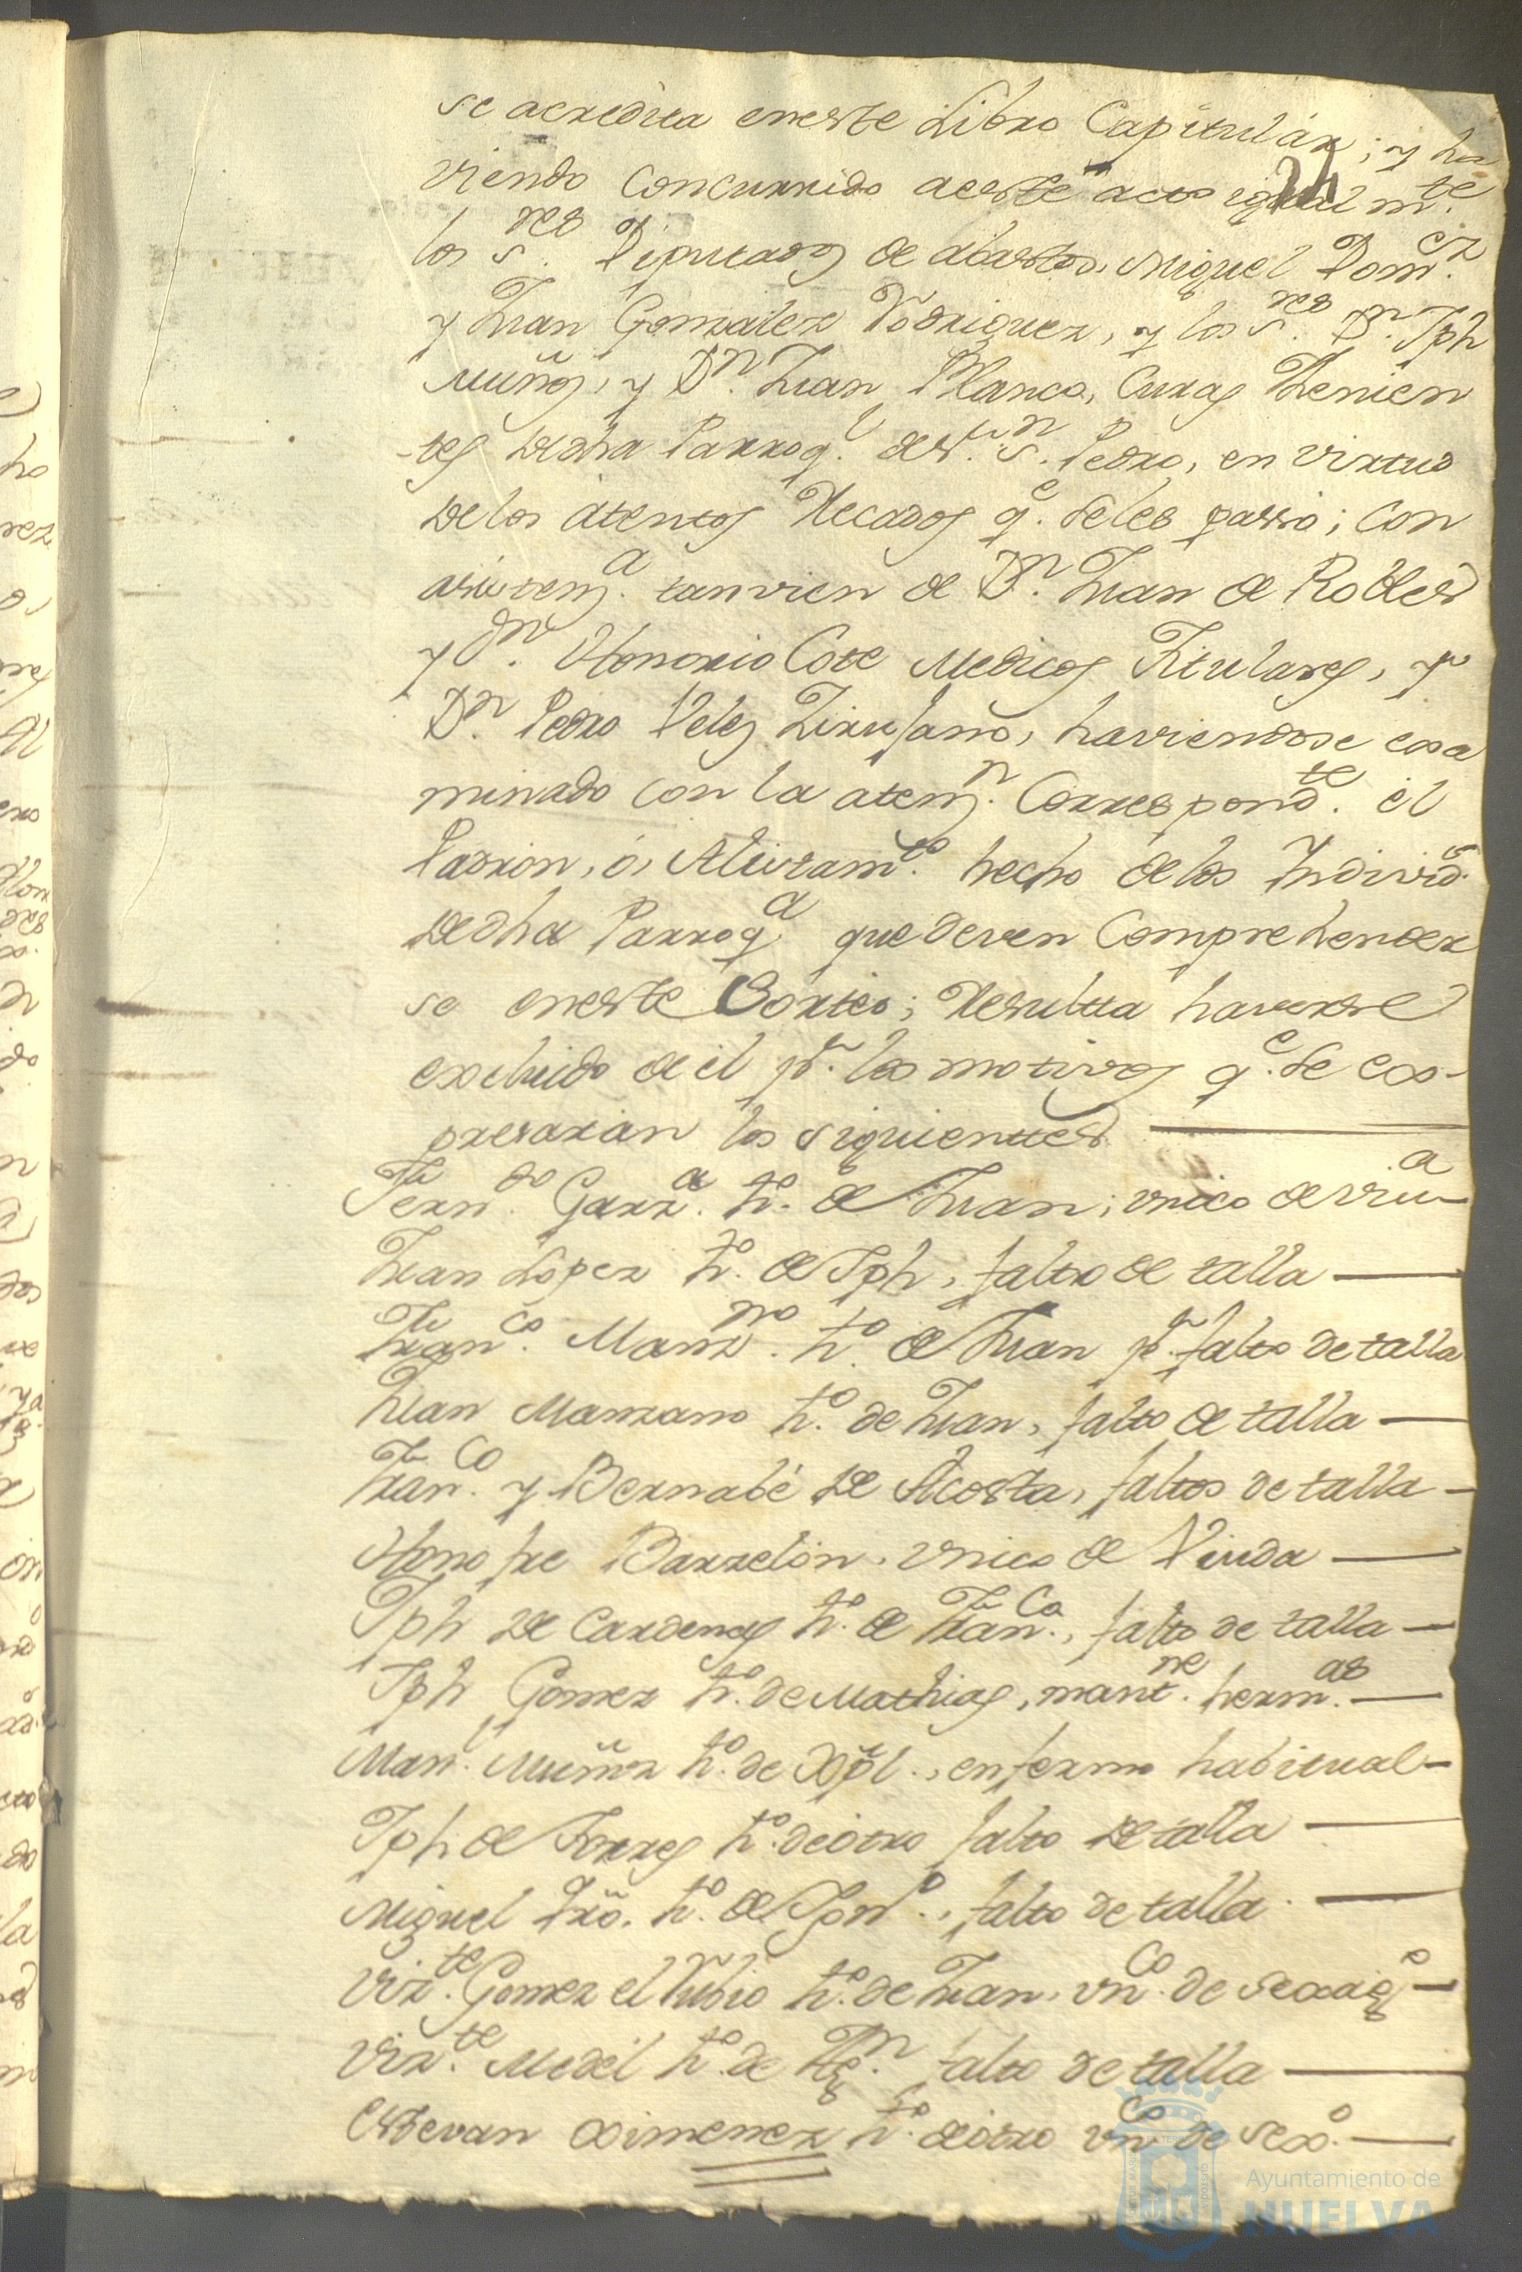 se acredita eneste Libro Capitulár; y ha
24
viendo concurrido aeste acto igual mte.
los sres. Diputados de abastos, Miguel Domez.
y Juan Gonzalez Rodriguez, y los sres. Dn. Jph
Muñoz, y Dn. Juan Blanco, Curas Thenien
tes dedha Parroql. desr. Sn. Pedro, en virtud
delos atentos Recados qe. seles passó; con
asistenza. tanvien de Dn. Juan de Robles
y Dn. Honorio Cote Medicos Titulares, y
Dn. Pedro Velez Zirujano, haviendose exa
minado con la atenzn. Correspondte. el
Padron, ó, Alistamto. hecho delos Individs.
dedha Parroqa. que deven Comprehender
se eneste Sorteo; Resultta haverse
excluido de él pr. los motivos qe. se ex-
presarán los siguienttes
Ferndo. Garza. ho. de Juan; unico de viua
Juan Lopez ho. de Jph, falto de talla
Franco. Manzno. ho. de Juan pr. falto de talla
Juan Manzano ho. de Juan, falto de talla
Franco. y Bernabé de Acosta, faltos de talla
Honofre Barrelón, unico de Viuda
Jph de Cardenas ho. de Franco., falto de talla
Jph Gomez ho. de Mathias, mantne. hermas.
Manl. Muñoz ho. de Xptl., enfermo habitual
Jph de Torres ho. deotro falto de talla
Miguel Fro. ho. de , falto de talla
Vizte. Gomez el Rubio ho. de Juan, unco. de sexago
Vizte. Medél ho. de falto de talla
Estevan Ximenez ho. deotro unco de sexo.
Ayuntamiento de
HUELVA